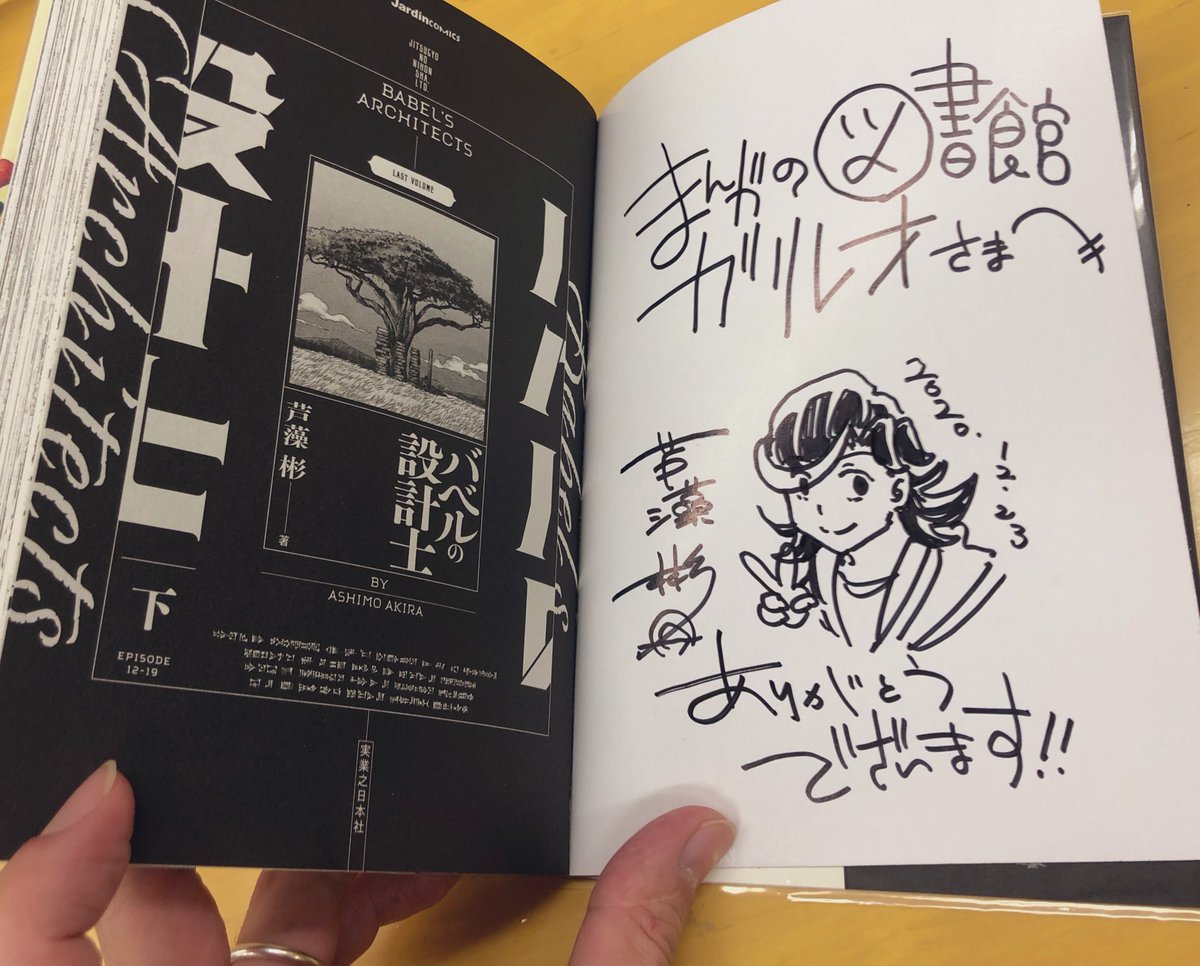 JardinCOMICS
JITSUGYO
NO
NIHON
SHA,
LTD.
BABEL'S
ARCHITECTS
LAST VOLUME
バベルの
設計士
芦藻彬
著
BY
ASHIMO AKIRA
設計士
下
EPISODE
12-19
Architects
Babel's
実業之日本社
まんがの図書館
ガリレオさまへ
2020.
12.23
芦藻彬
ありがとう
ございます!!